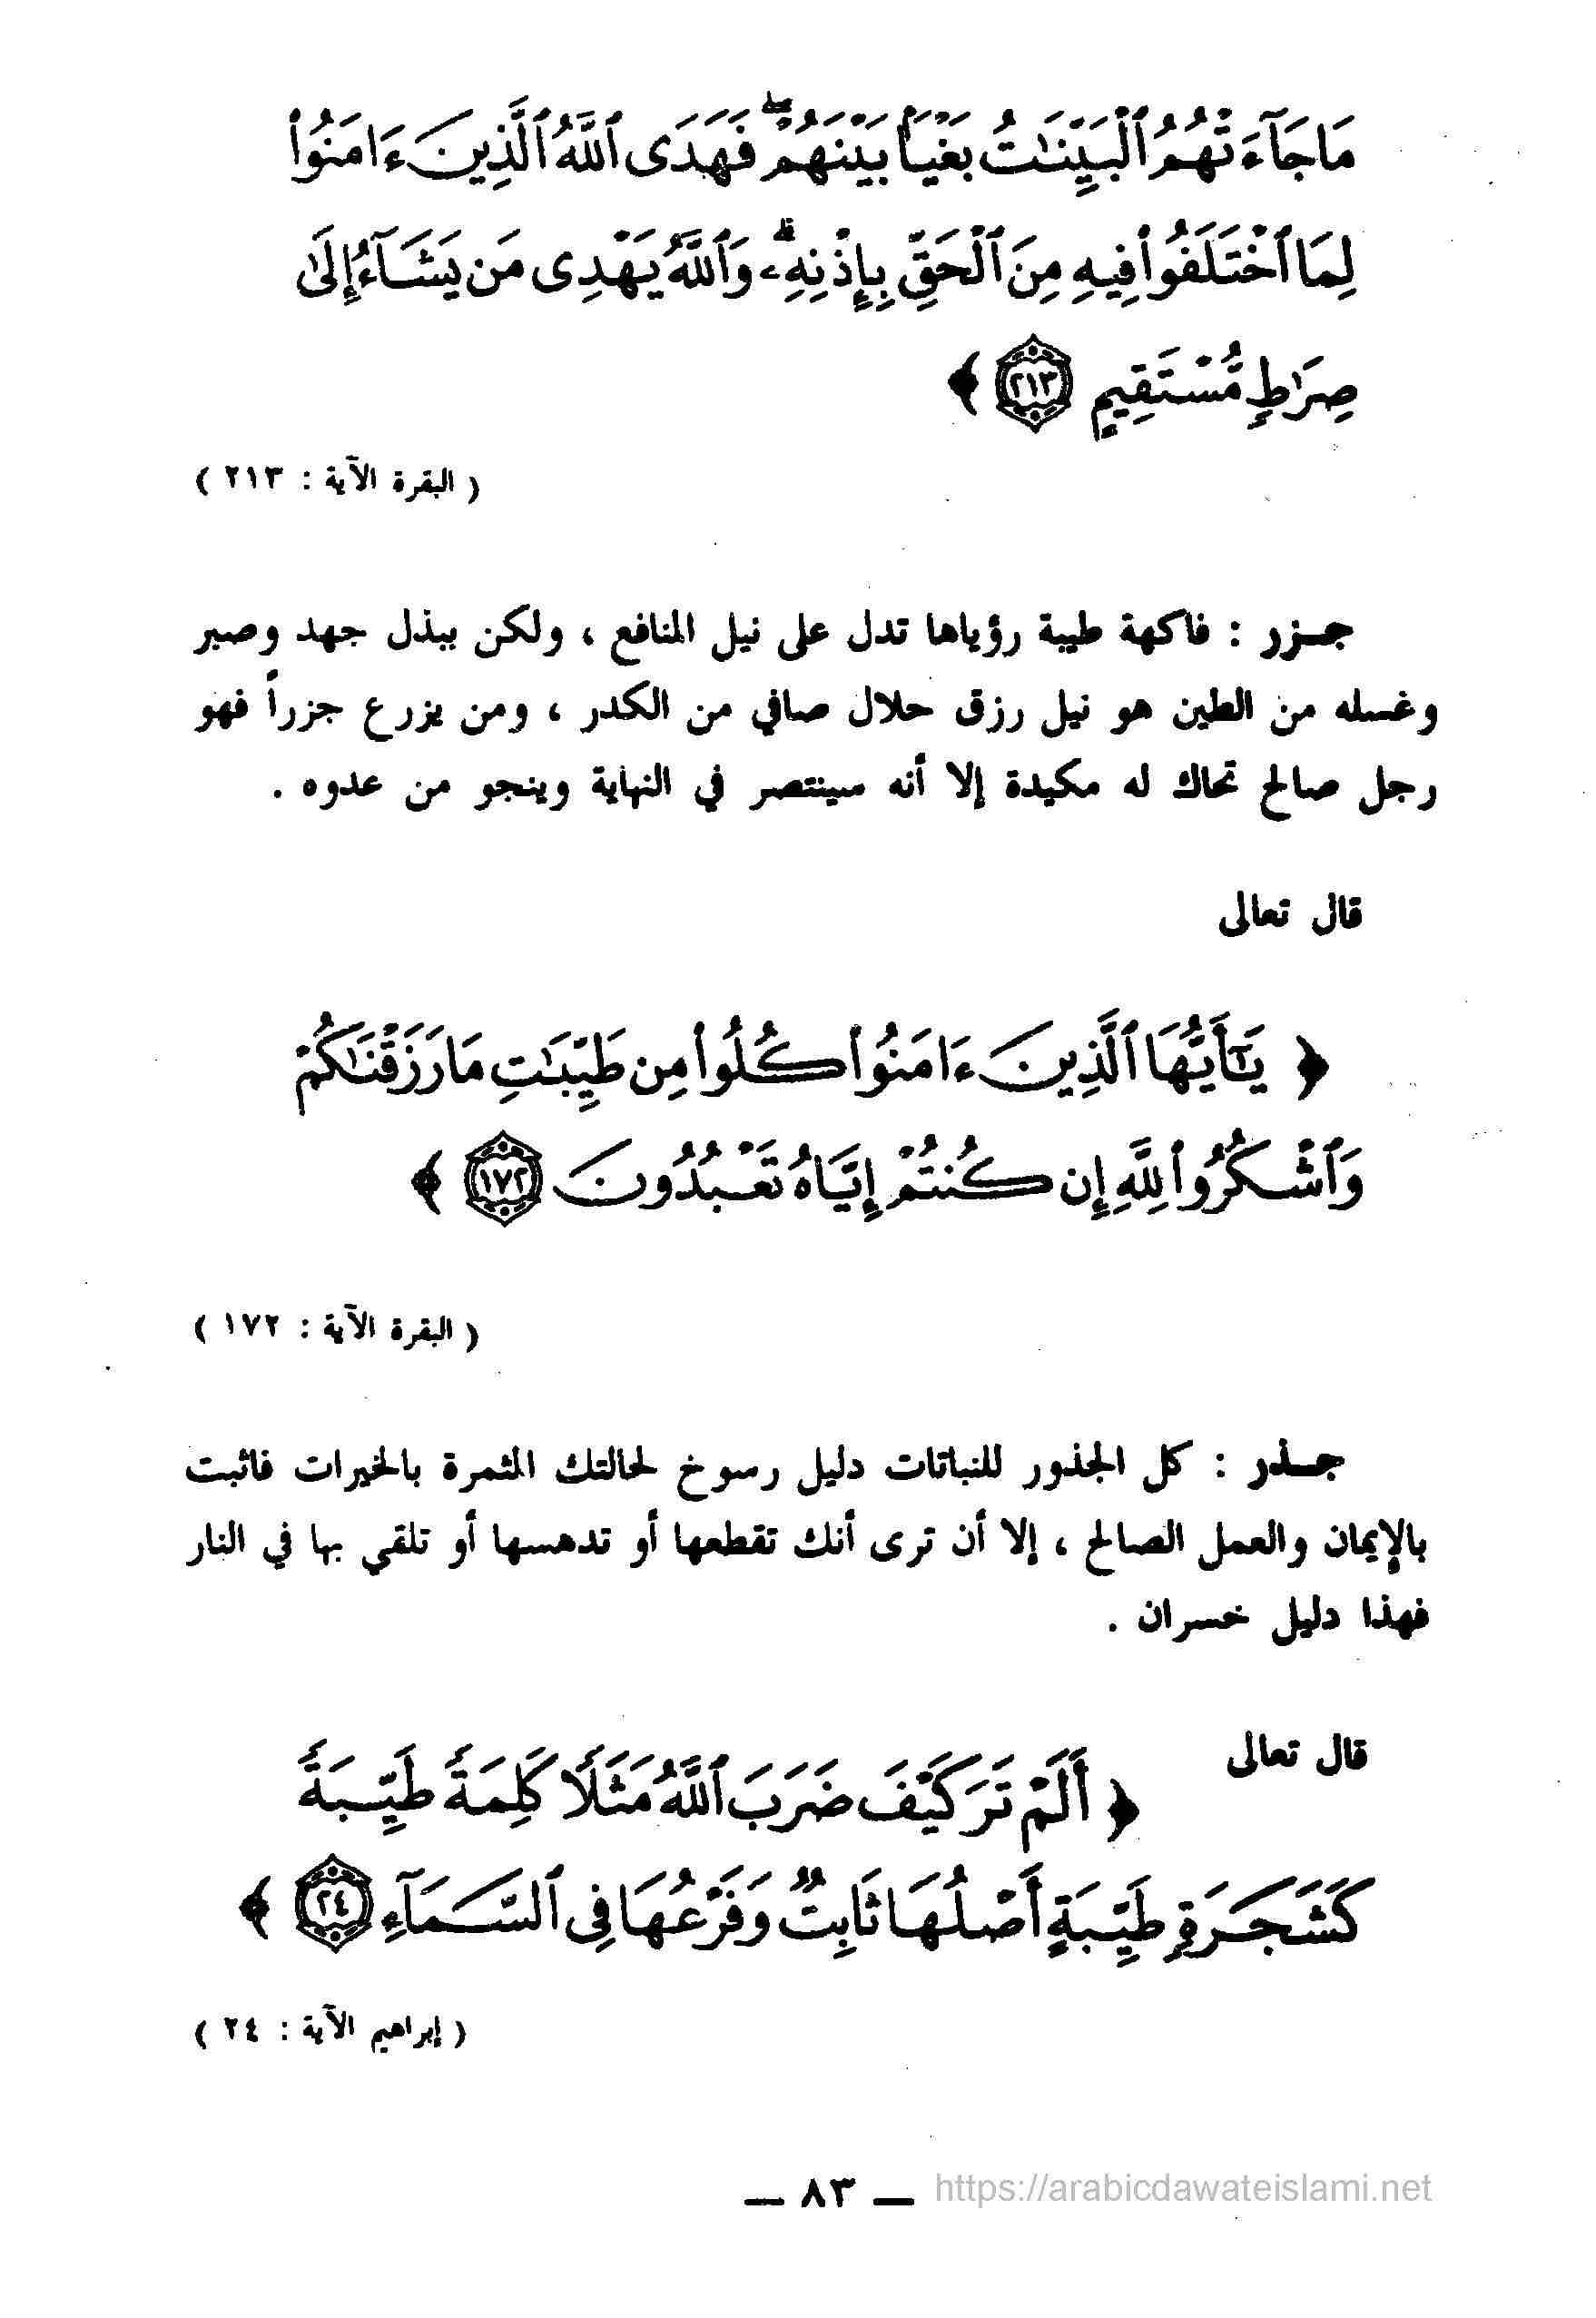 مَا جَآءَتْهُمُ ٱلْبَيِّنَـٰتُ بَغْيًۢا بَيْنَهُمْ ۖ فَهَدَى ٱللَّهُ ٱلَّذِينَ ءَامَنُوا۟
لِمَا ٱخْتَلَفُوا۟ فِيهِ مِنَ ٱلْحَقِّ بِإِذْنِهِۦ ۗ وَٱللَّهُ يَهْدِى مَن يَشَآءُ إِلَىٰ
صِرَٰطٍ مُّسْتَقِيمٍ ٢١٣ ﴾
( البقرة الآية : ٢١٣ )
جـزر : فاكهة طيبة رؤياها تدل على نيل المنافع ، ولكن ببذل جهد وصبر
وغسله من الطين هو نيل رزق حلال صافي من الكدر ، ومن يزرع جزراً فهو
رجل صالح تحاك له مكيدة إلا أنه سينتصر في النهاية وينجو من عدوه .
قال تعالى
﴿ يَـٰٓأَيُّهَا ٱلَّذِينَ ءَامَنُوا۟ كُلُوا۟ مِن طَيِّبَـٰتِ مَا رَزَقْنَـٰكُمْ
وَٱشْكُرُوا۟ لِلَّهِ إِن كُنتُمْ إِيَّاهُ تَعْبُدُونَ ١٧٢ ﴾
( البقرة الآية : ١٧٢ )
جـذر : كل الجذور للنباتات دليل رسوخ لحالتك المثمرة بالخيرات فاثبت
بالإيمان والعمل الصالح ، إلا أن ترى أنك تقطعها أو تدهسها أو تلقي بها في النار
فهذا دليل خسران .
قال تعالى
﴿ أَلَمْ تَرَ كَيْفَ ضَرَبَ ٱللَّهُ مَثَلًا كَلِمَةً طَيِّبَةً
كَشَجَرَةٍ طَيِّبَةٍ أَصْلُهَا ثَابِتٌ وَفَرْعُهَا فِى ٱلسَّمَآءِ ٢٤ ﴾
( إبراهيم الآية : ٢٤ )
— ٨٣ —
https://arabicdawateislami.net